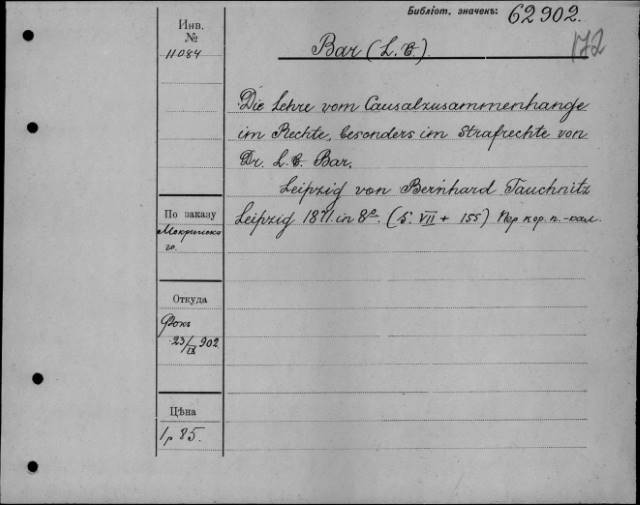 Библіот. значекъ: 62902.
172
Инв.
№
11084
Bar (L. v.)
Die Lehre vom Causalzusammenhange
im Rechte, besonders im Strafrechte von
Dr. L. v. Bar.
Leipzig von Bernhard Tauchnitz
Leipzig 1871. in 8º. (S. VII + 155) Кор. п.-кал.
По заказу
Мокринска
го.
Откуда
Фокъ
23/IX 902
Цѣна
1р 85.